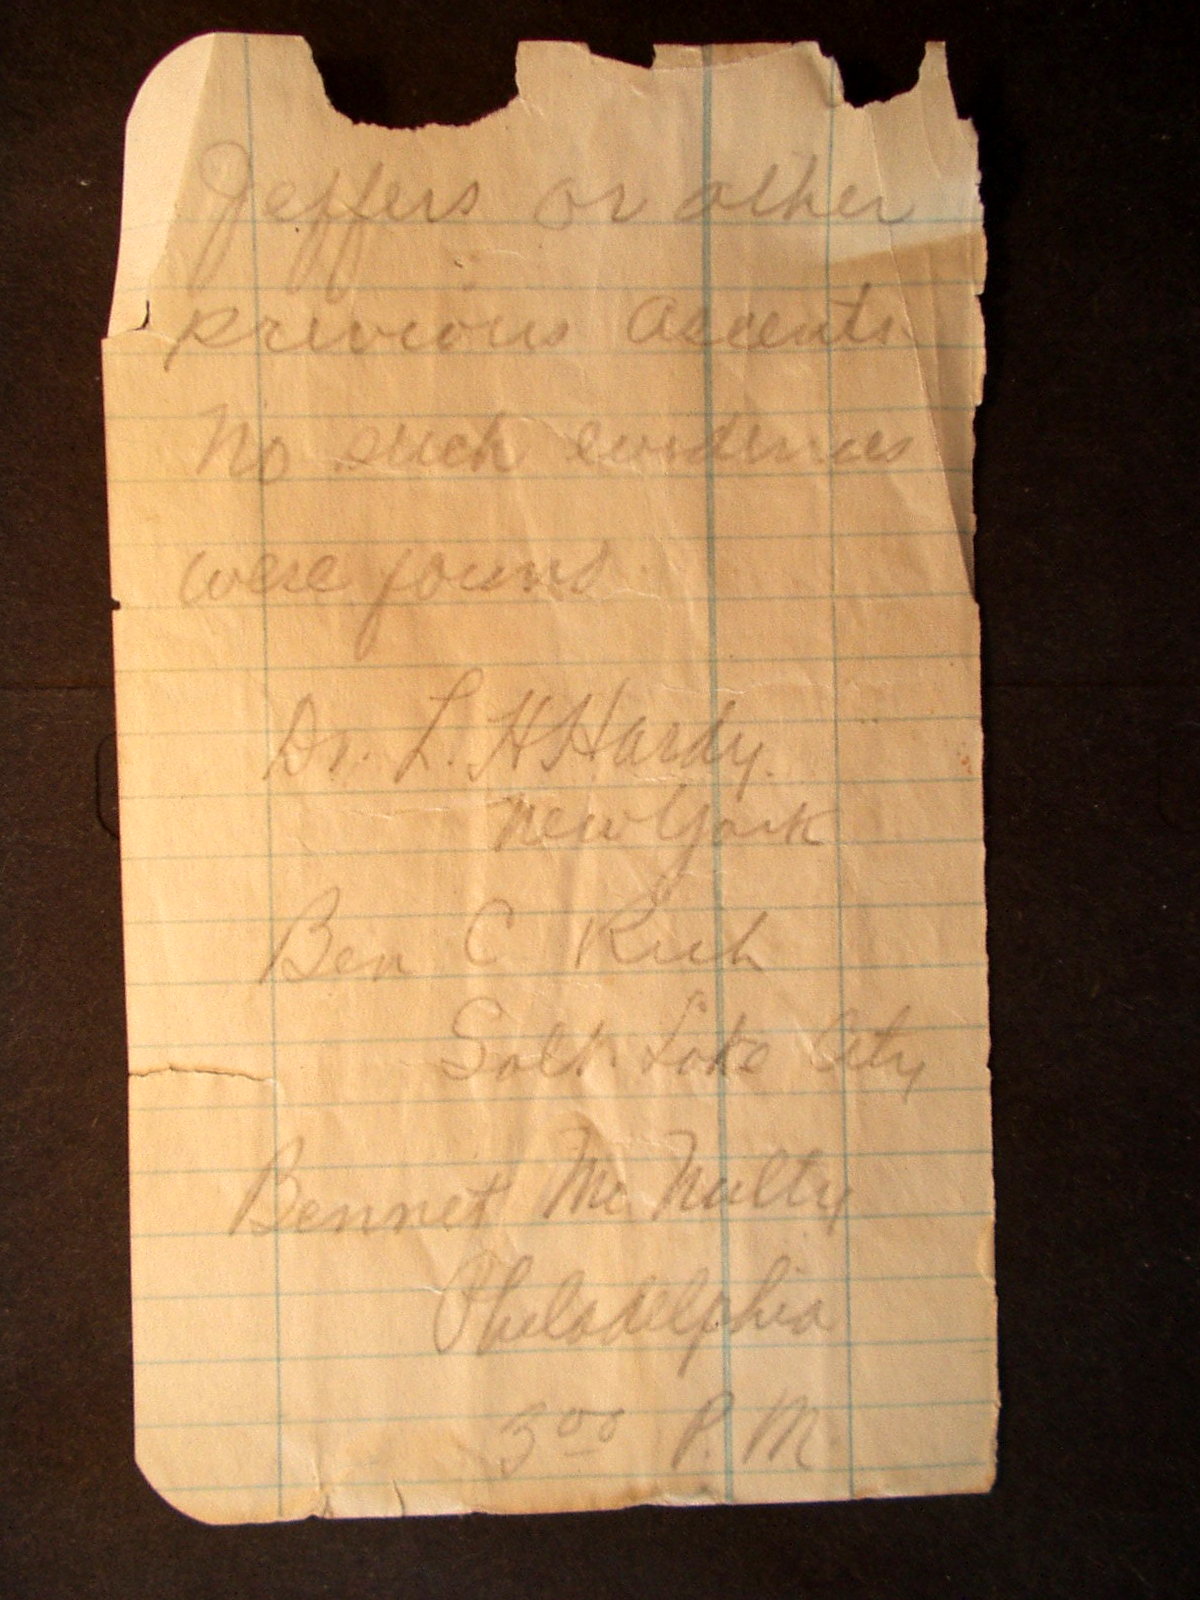 Jeffers or other
previous ascents
No such evidences
were found
Dr. L. H Hardy.
New York
Ben C Rich
Salt Lake City
Bennet Mc Nulty
Philadelphia
3 00 P. M.